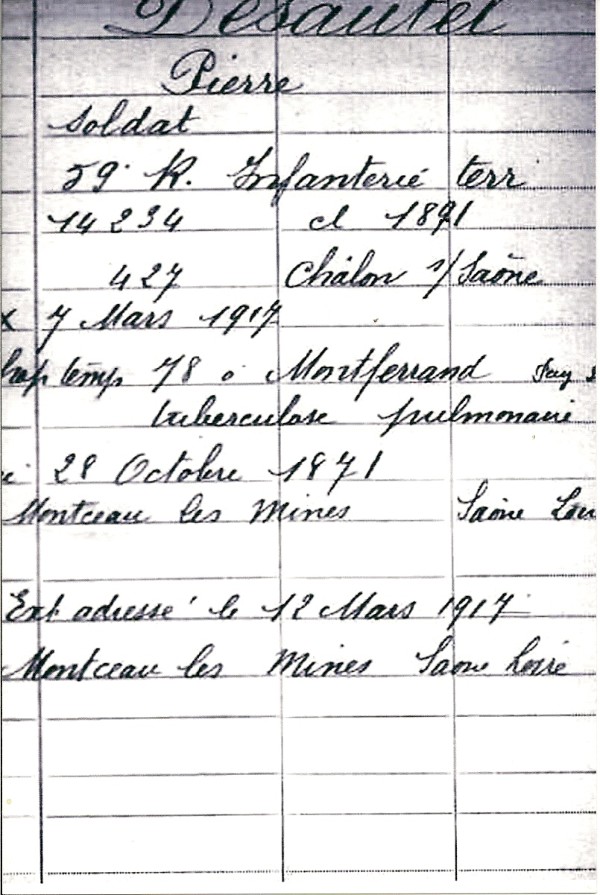 Desautel
Pierre
Soldat
59. R. Infanterie terr
14234 cl 1891
427 Châlon s/Saône
x 7 Mars 1917
hop temp 78 à Montferrand Puy
tuberculose pulmonaire
28 Octobre 1871
Montceau les Mines Saône Loi
Ext adressé le 12 Mars 1917
Montceau les Mines Saone Loire